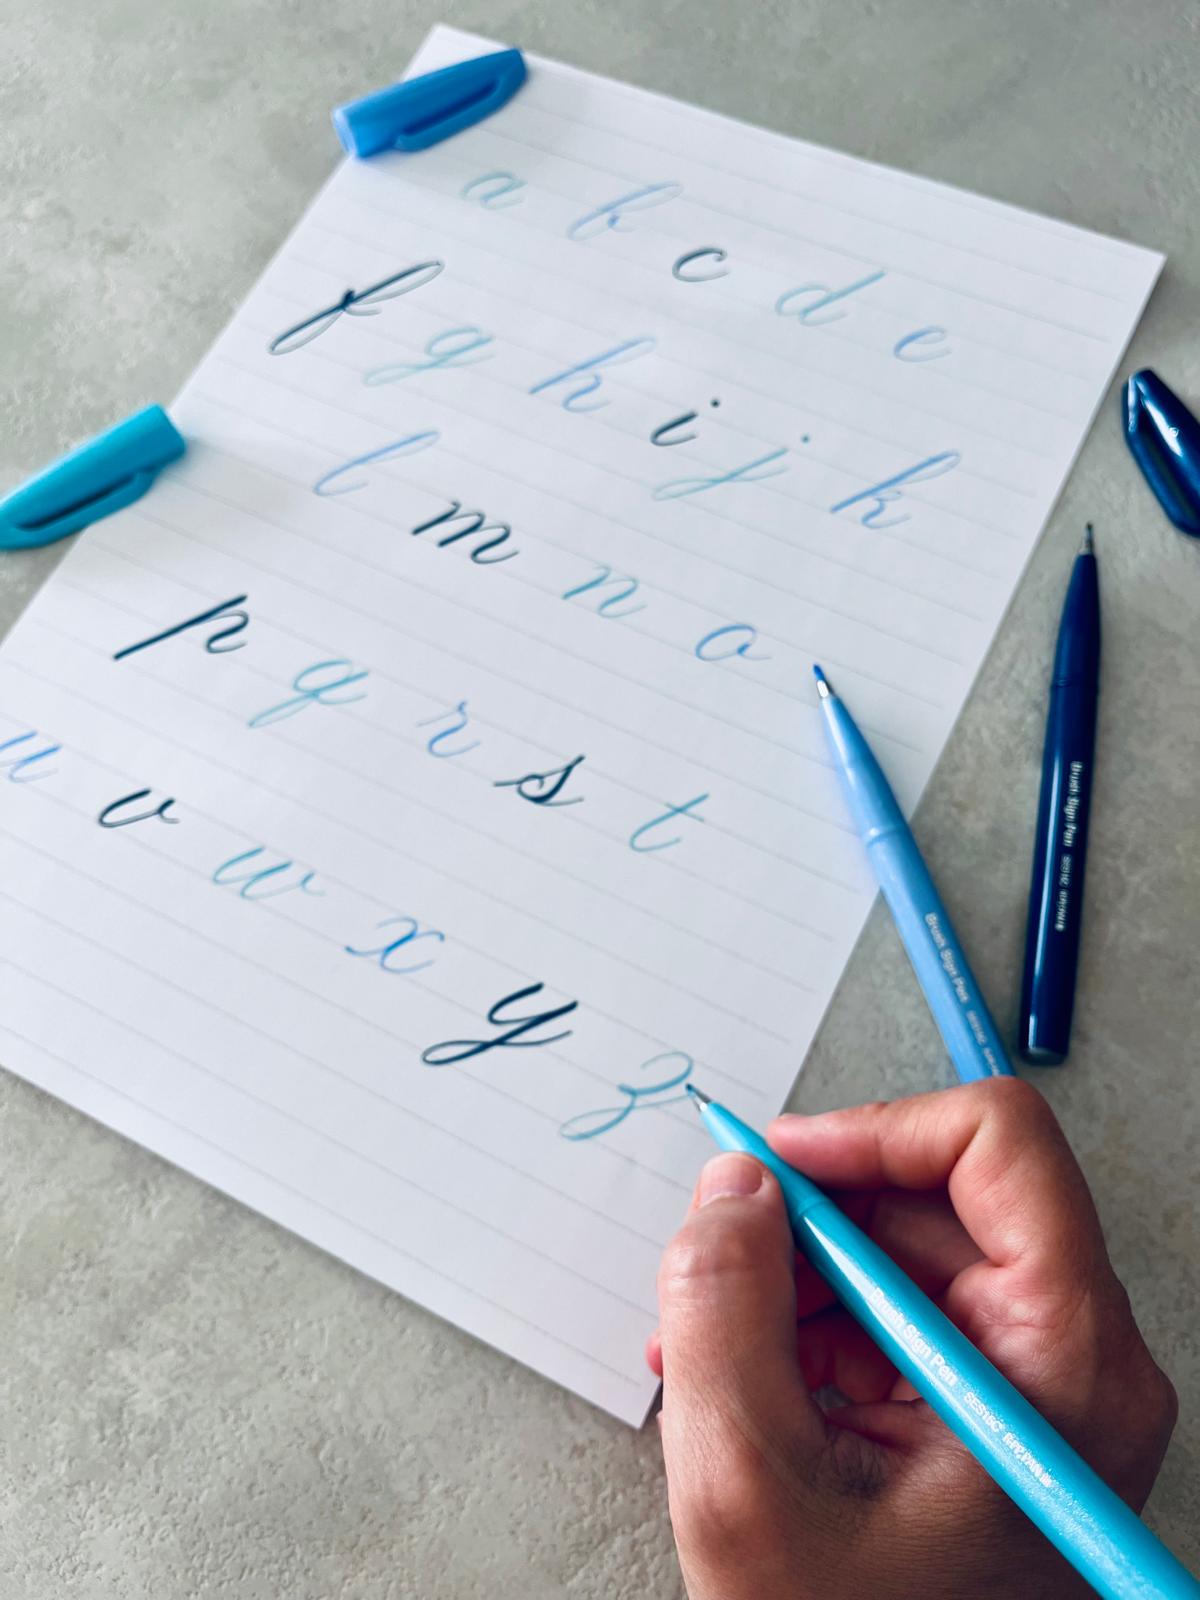 a b c d e
f g h i j k
l m n o
p q r s t
u v w x y z
Brush Sign Pen
Brush Sign Pen
Brush Sign Pen SES15C